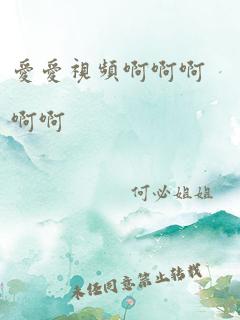 愛愛視頻啊啊啊
啊啊
何必姐姐
未经同意禁止转载